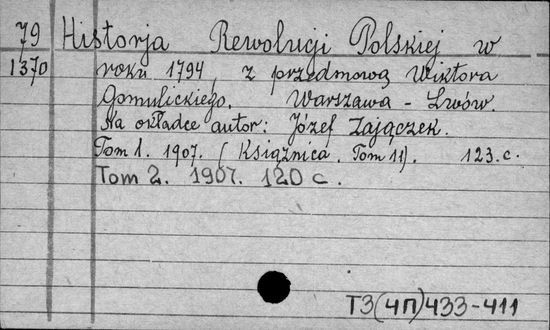 79 Historja Rewolucji Polskiej w
1370 roku 1794, z przedmową Wiktora
Gomulickiego. Warszawa - Lwów.
Na okładce autor: Józef Zajączek.
Tom 1. 1907. (Książnica. Tom 11). 123.c.
Tom 2. 1907. 120 c.
T3(4П)433-411